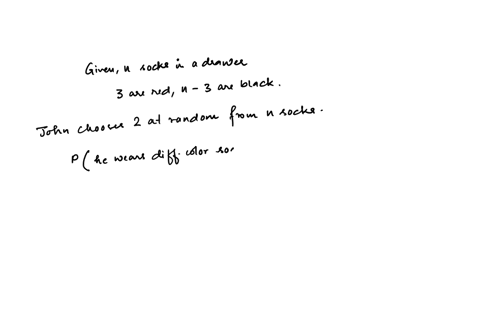 Given, n socks in a drawer
3 are red, n - 3 are black.
John chooses 2 at random from n socks.
P ( he wears diff. color so